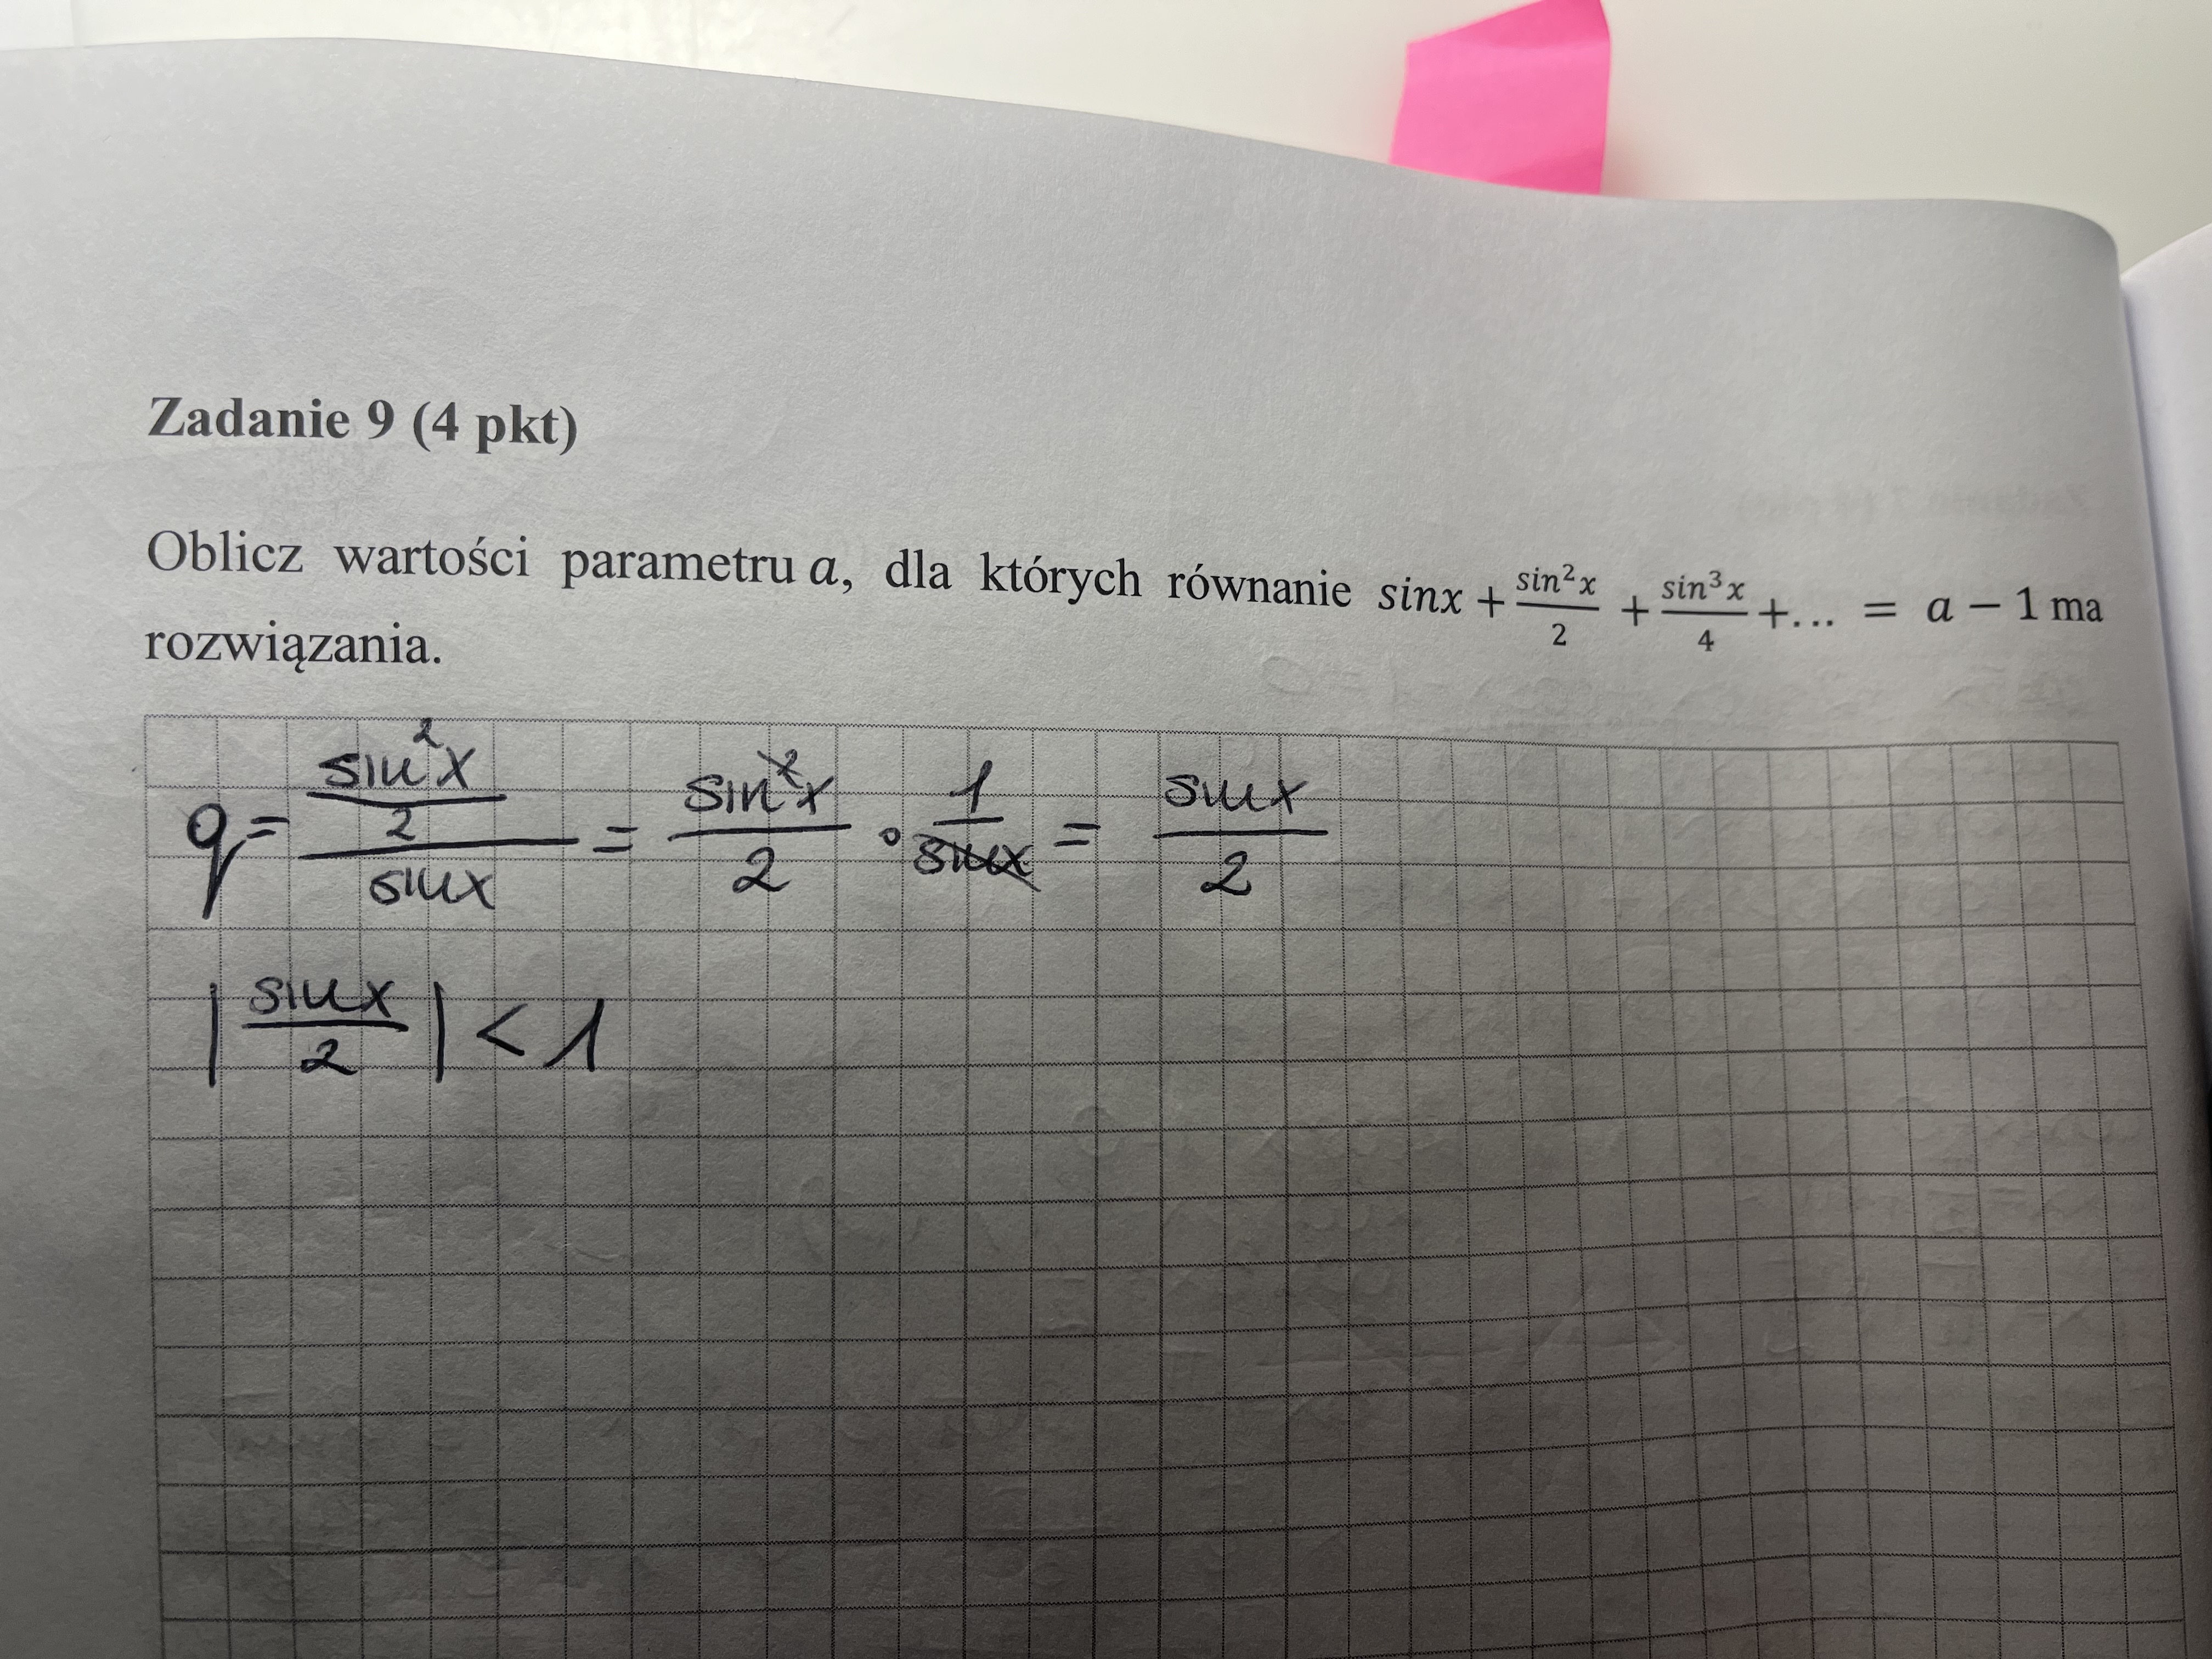 Zadanie 9 (4 pkt)
Oblicz wartości parametru a, dla których równanie sinx + sin²x/2 + sin³x/4 +... = a − 1 ma
rozwiązania.
q = (sin²x/2)/sinx = sin²x/2 · 1/sinx = sinx/2
|sinx/2| < 1